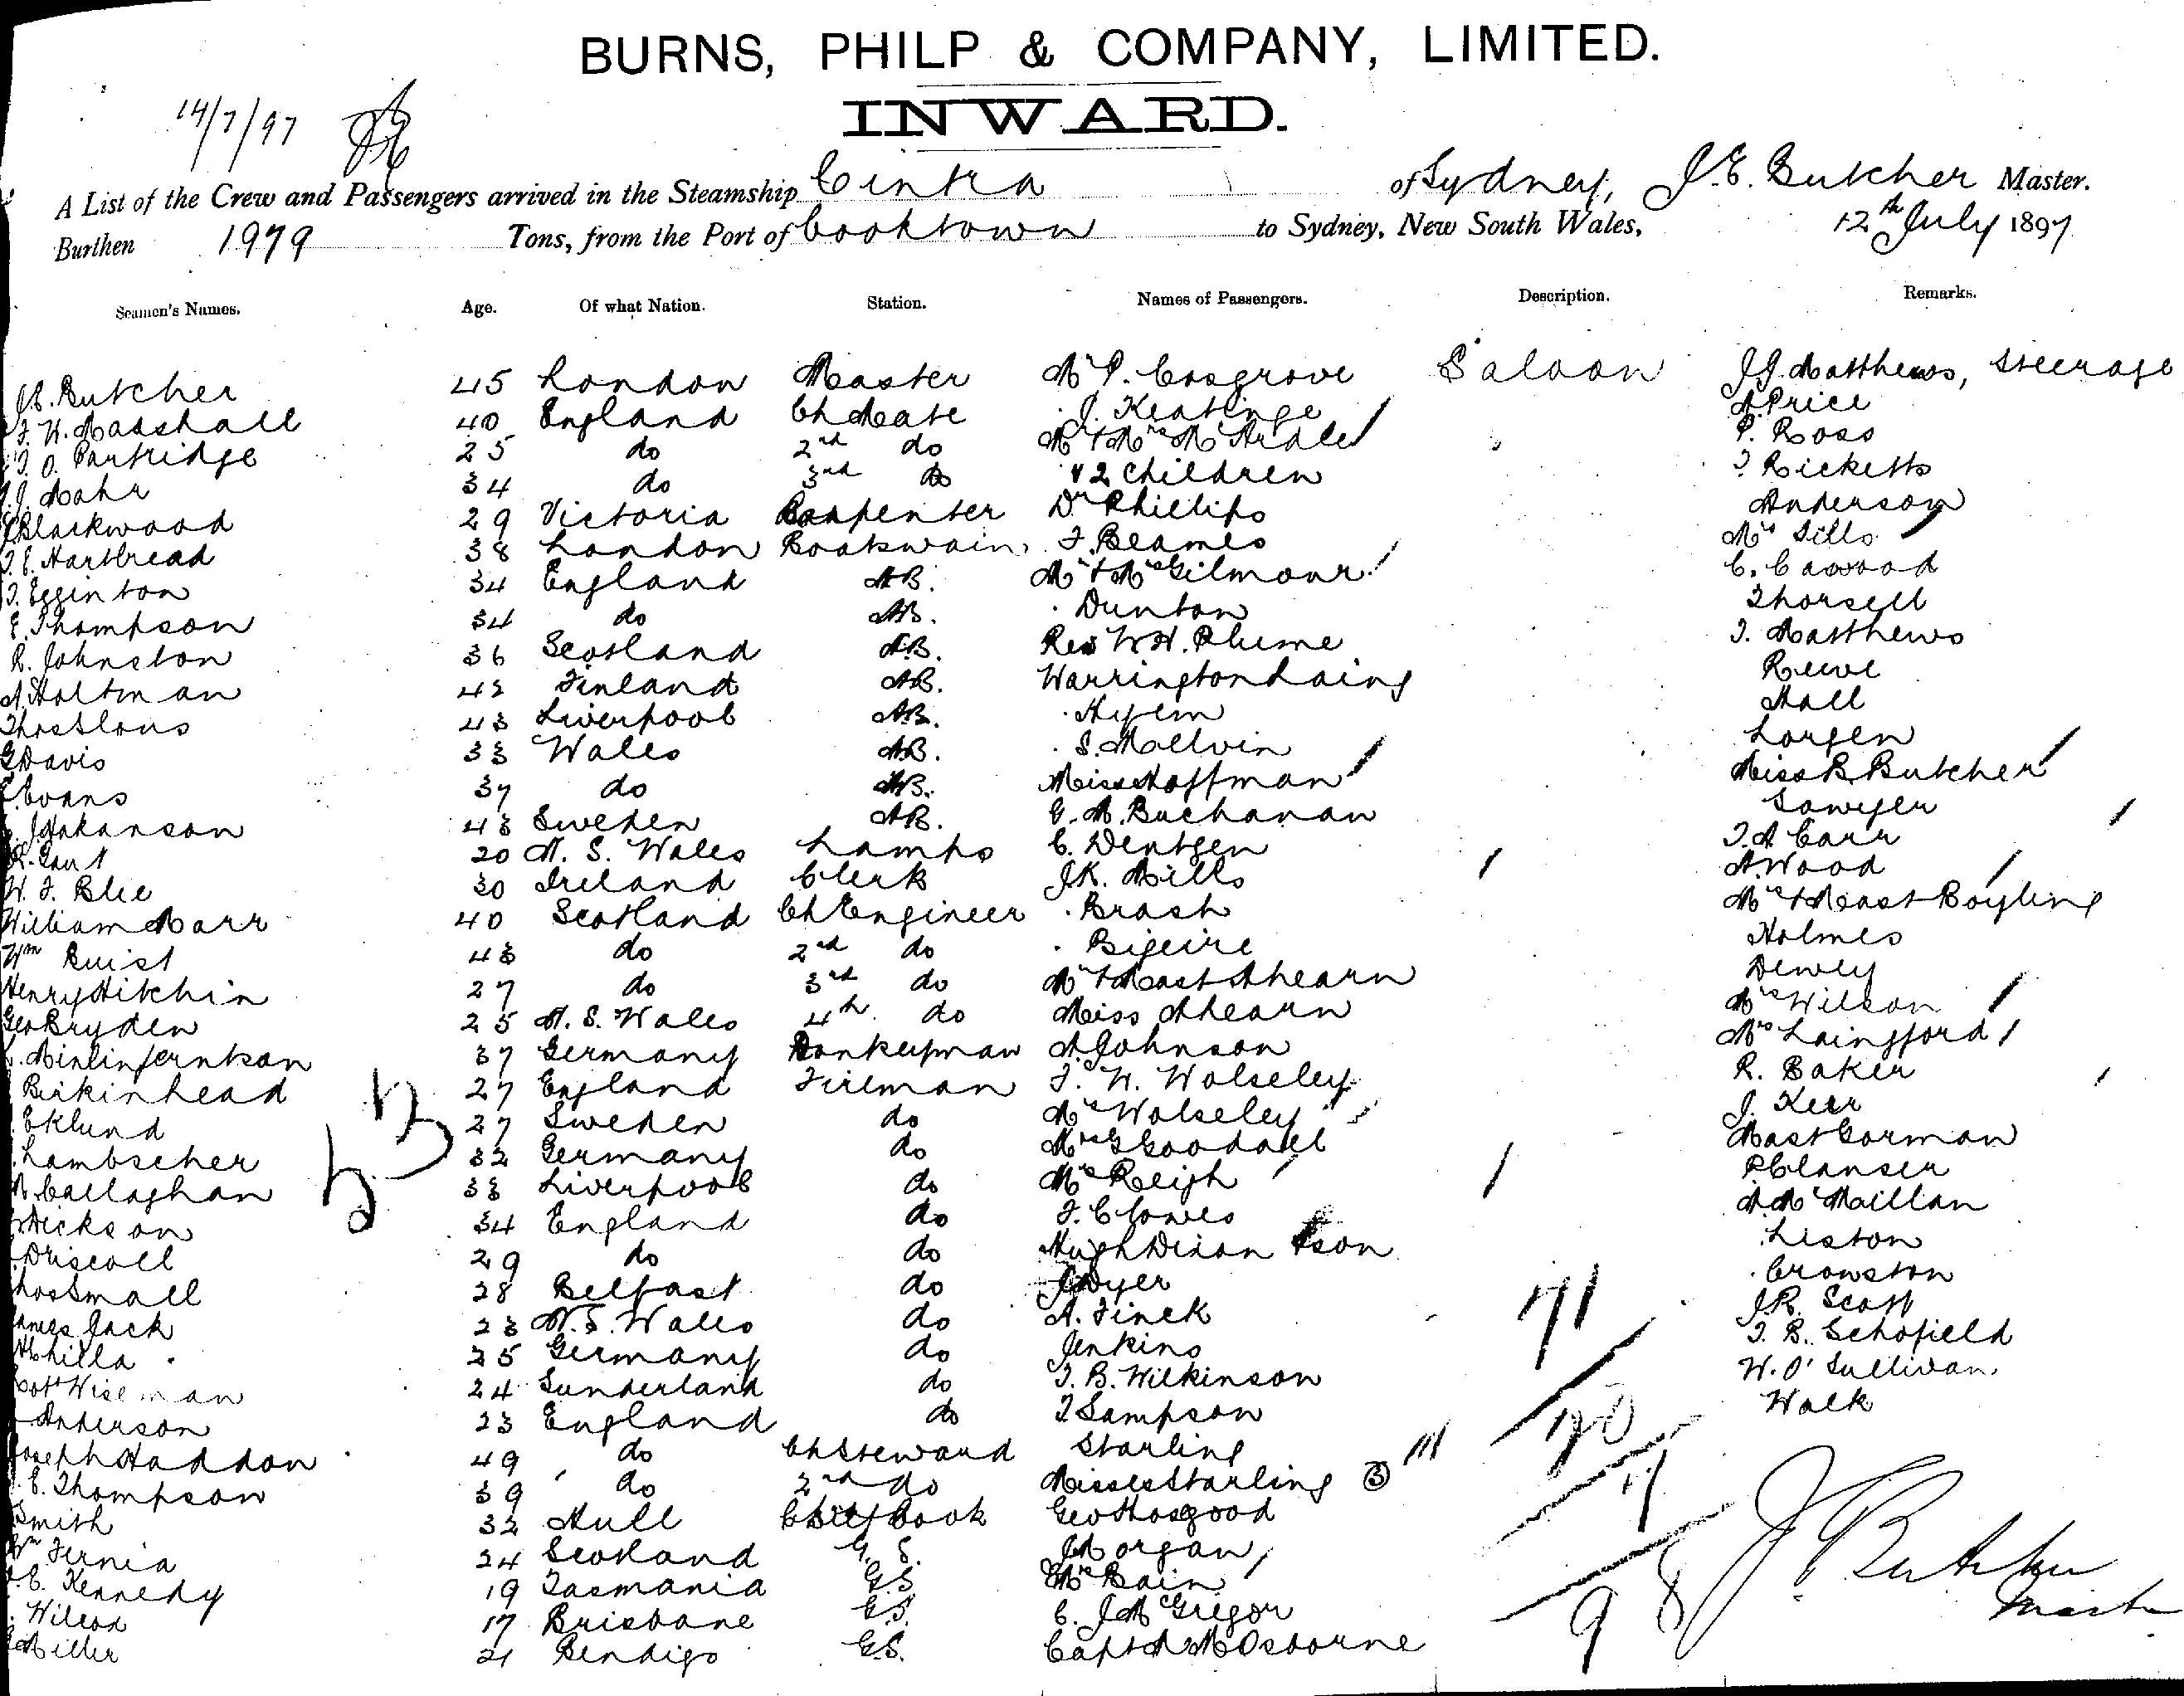 BURNS, PHILP & COMPANY, LIMITED.
INWARD.
14/7/97
A List of the Crew and Passengers arrived in the Steamship Cintra of Sydney, J.E. Butcher Master.
Burthen 1979 Tons, from the Port of Cooktown to Sydney, New South Wales, 12th July 1897
Seamen's Names. Age. Of what Nation. Station. Names of Passengers. Description. Remarks.
J.E. Butcher 45 London Master Mr P. Cosgrove Saloon J.J. Matthews, Steerage
Marshall 40 England Ch Mate J. Keatinge A Price
Partridge 25 do 2nd do Mr & Mrs McArdle P. Ross
Mahr 34 do 3rd do & 2 Children T Ricketts
Blackwood 29 Victoria Carpenter Dr Phillips Anderson
T.E. Hartbread 38 London Boatswain F. Beames Mrs Sills
T. Egginton 34 England AB. Mr & Mrs Gilmour C. Cawood
E. Thompson 34 do AB. Dunton Thorsell
R. Johnston 36 Scotland AB. Rev W.H. Plume T. Matthews
A Holtman 42 Finland AB. Warrington Laing Rewe
43 Liverpool AB. Hyem Hall
G Davis 33 Wales AB. S. Mellvin Lorgen
Evans 37 do AB. Miss Hoffman Miss B. Butcher
Hakanson 43 Sweden AB. G. M. Buchanan Sawyer
20 N. S. Wales Lamps C. Wentgen T.A Carr
W. F. Blee 30 Ireland Clerk J.K. Mills A. Wood
William Marr 40 Scotland Ch Engineer Brash Mrs & Mast Boyling
Wm Buist 43 do 2nd do Holmes
Henry Hitchin 27 do 3rd do Mr & Mast Ahearn Dewey
Geo Bryden 25 N. S. Wales 4th do Miss Ahearn Mrs Wilson
37 Germany Donkeyman A Johnson Mrs Laingford
Birkinhead 27 England Fireman F. W. Wolseley R. Baker
Eklund 27 Sweden do Mrs Wolseley J. Kerr
Lambscher 32 Germany do Mrs G Goodall Mast Gorman
Callaghan 33 Liverpool do Mrs Reigh P Clanser
Hickson 34 England do F. Clowes A. McMillan
Driscoll 29 do do Hugh Dixon & son Liston
Thos Small 28 Belfast do J Dyer Crowston
James Jack 23 N.S. Wales do A. Finek J.R. Scott
25 Germany do Jenkins T. B. Schofield
Wiseman 24 Sunderland do T. B. Wilkinson W. O'Sullivan.
Anderson 23 England do T Sampson Walk
Joseph Haddon 49 do Ch Steward Starling
E. Thompson 39 do 2nd do Misses Starling 3
Smith 32 Hull Chief Cook Geo Hosgood
Wm Fernia 24 Scotland G. S. J Morgan
Kennedy 19 Tasmania G.S. Mrs Bain
Wilson 17 Brisbane G.S. C. J McGregor
Miller 21 Bendigo G.S. Capt A M Osborne
71
98
J Butcher